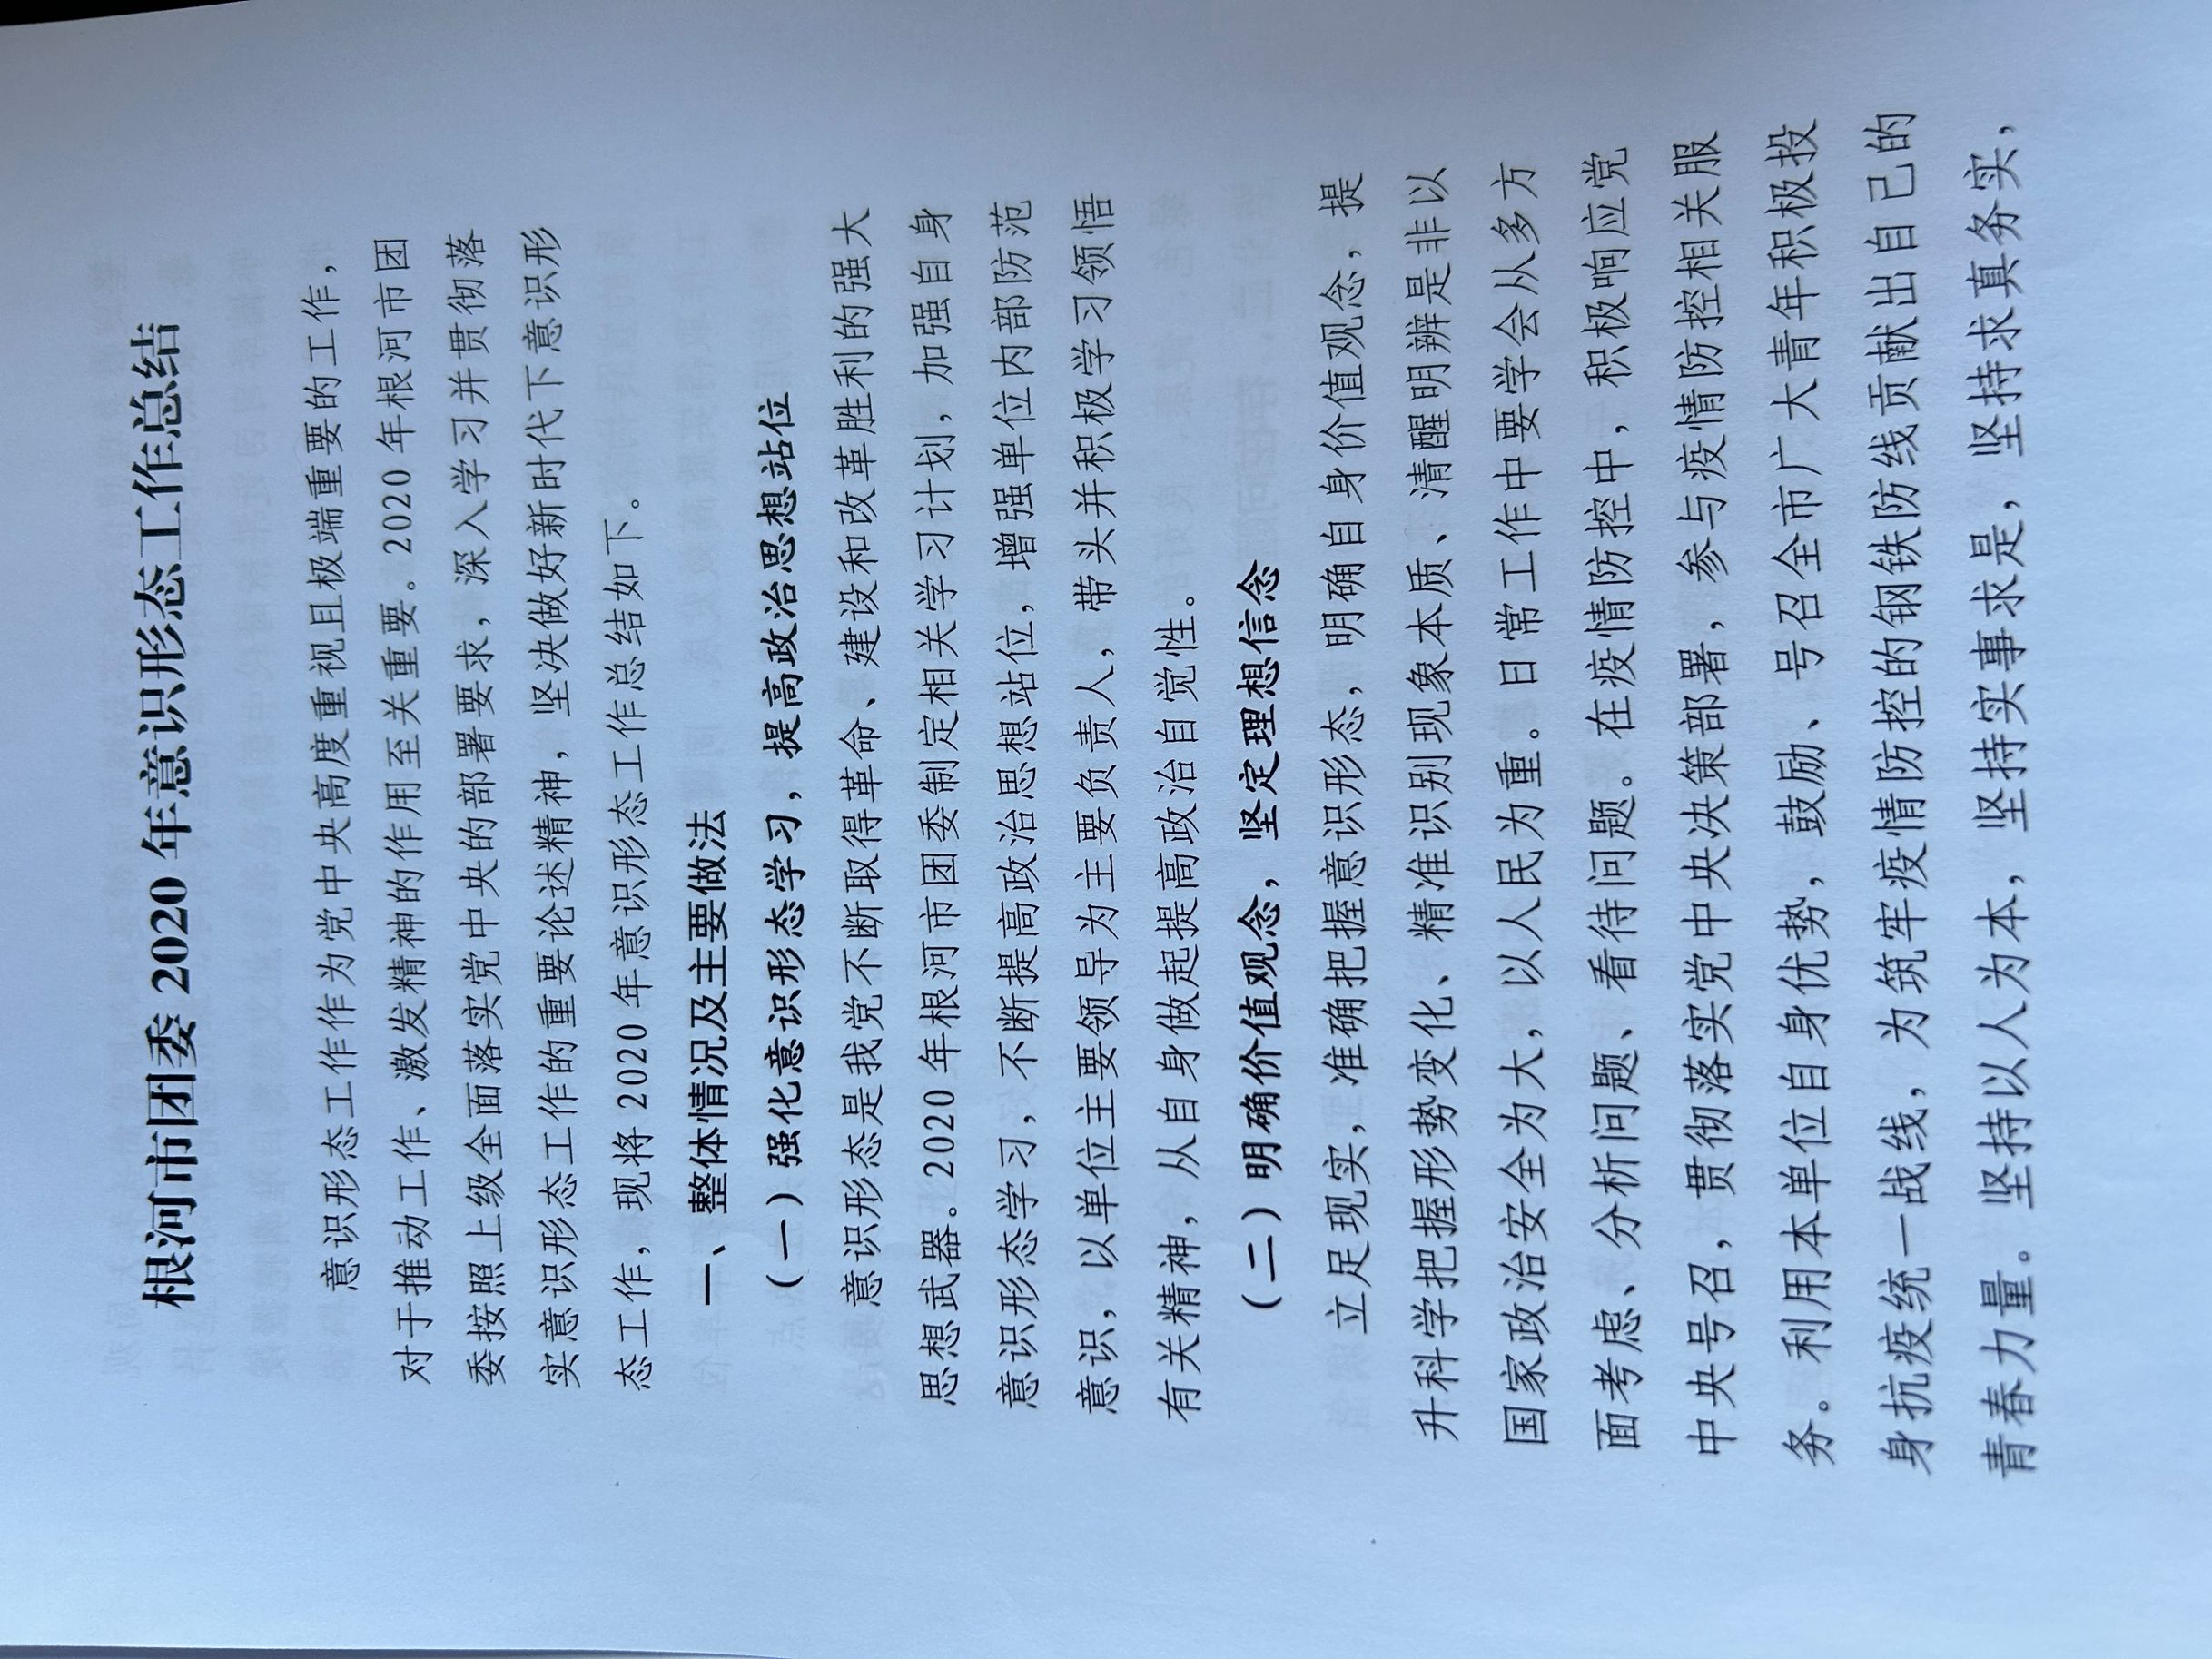 根河市团委 2020 年意识形态工作总结
意识形态工作作为党中央高度重视且极端重要的工作，
对于推动工作、激发精神的作用至关重要。2020 年根河市团
委按照上级全面落实党中央的部署要求，深入学习并贯彻落
实意识形态工作的重要论述精神，坚决做好新时代下意识形
态工作，现将 2020 年意识形态工作总结如下。
一、整体情况及主要做法
（一）强化意识形态学习，提高政治思想站位
意识形态是我党不断取得革命、建设和改革胜利的强大
思想武器。2020 年根河市团委制定相关学习计划，加强自身
意识形态学习，不断提高政治思想站位，增强单位内部防范
意识，以单位主要领导为主要负责人，带头并积极学习领悟
有关精神，从自身做起提高政治自觉性。
（二）明确价值观念，坚定理想信念
立足现实，准确把握意识形态，明确自身价值观念，提
升科学把握形势变化、精准识别现象本质、清醒明辨是非以
国家政治安全为大，以人民为重。日常工作中要学会从多方
面考虑、分析问题、看待问题。在疫情防控中，积极响应党
中央号召，贯彻落实党中央决策部署，参与疫情防控相关服
务。利用本单位自身优势，鼓励、号召全市广大青年积极投
身抗疫统一战线，为筑牢疫情防控的钢铁防线贡献出自己的
青春力量。坚持以人为本，坚持实事求是，坚持求真务实，